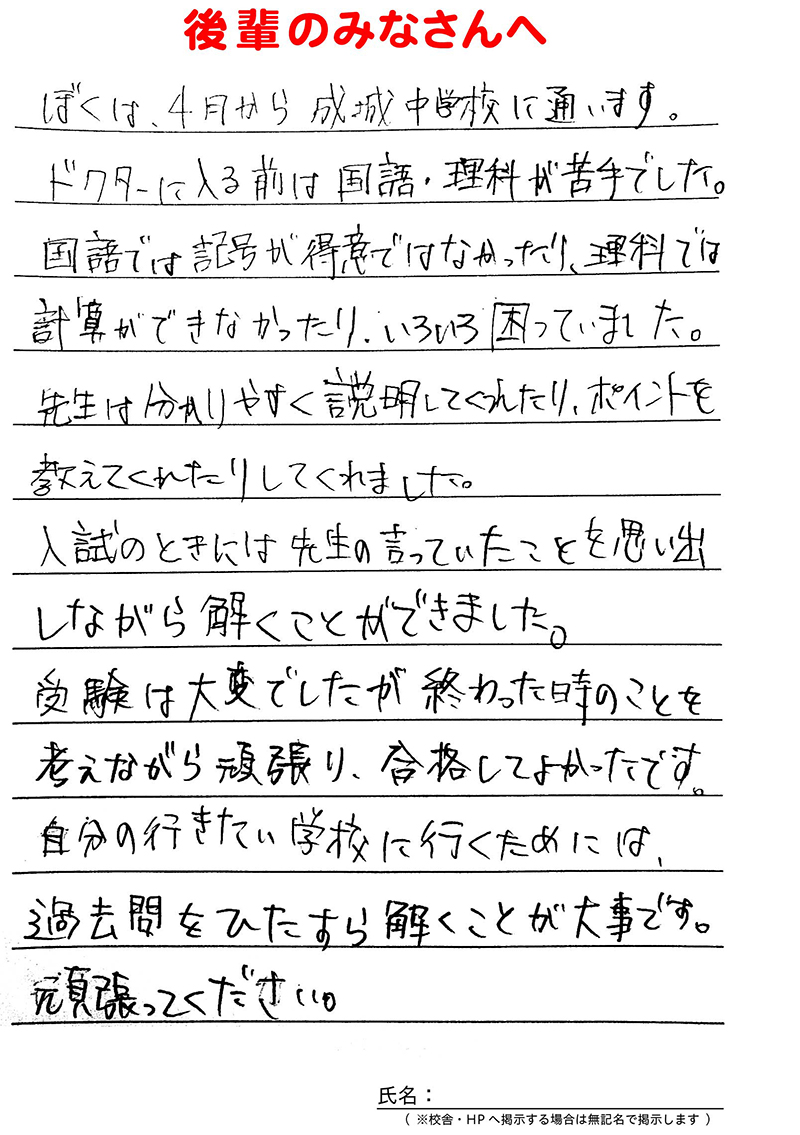 後輩のみなさんへ
ぼくは、4月から成城中学校に通います。
ドクターに入る前は国語・理科が苦手でした。
国語では記号が得意ではなかったり、理科では
計算ができなかったり、いろいろ困っていました。
先生は分かりやすく説明してくれたり、ポイントを
教えてくれたりしてくれました。
入試のときには先生の言っていたことを思い出
しながら解くことができました。
受験は大変でしたが終わった時のことを
考えながら頑張り、合格してよかったです。
自分の行きたい学校に行くためには、
過去問をひたすら解くことが大事です。
頑張ってください。
氏名：
（ ※校舎・HPへ掲示する場合は無記名で掲示します ）